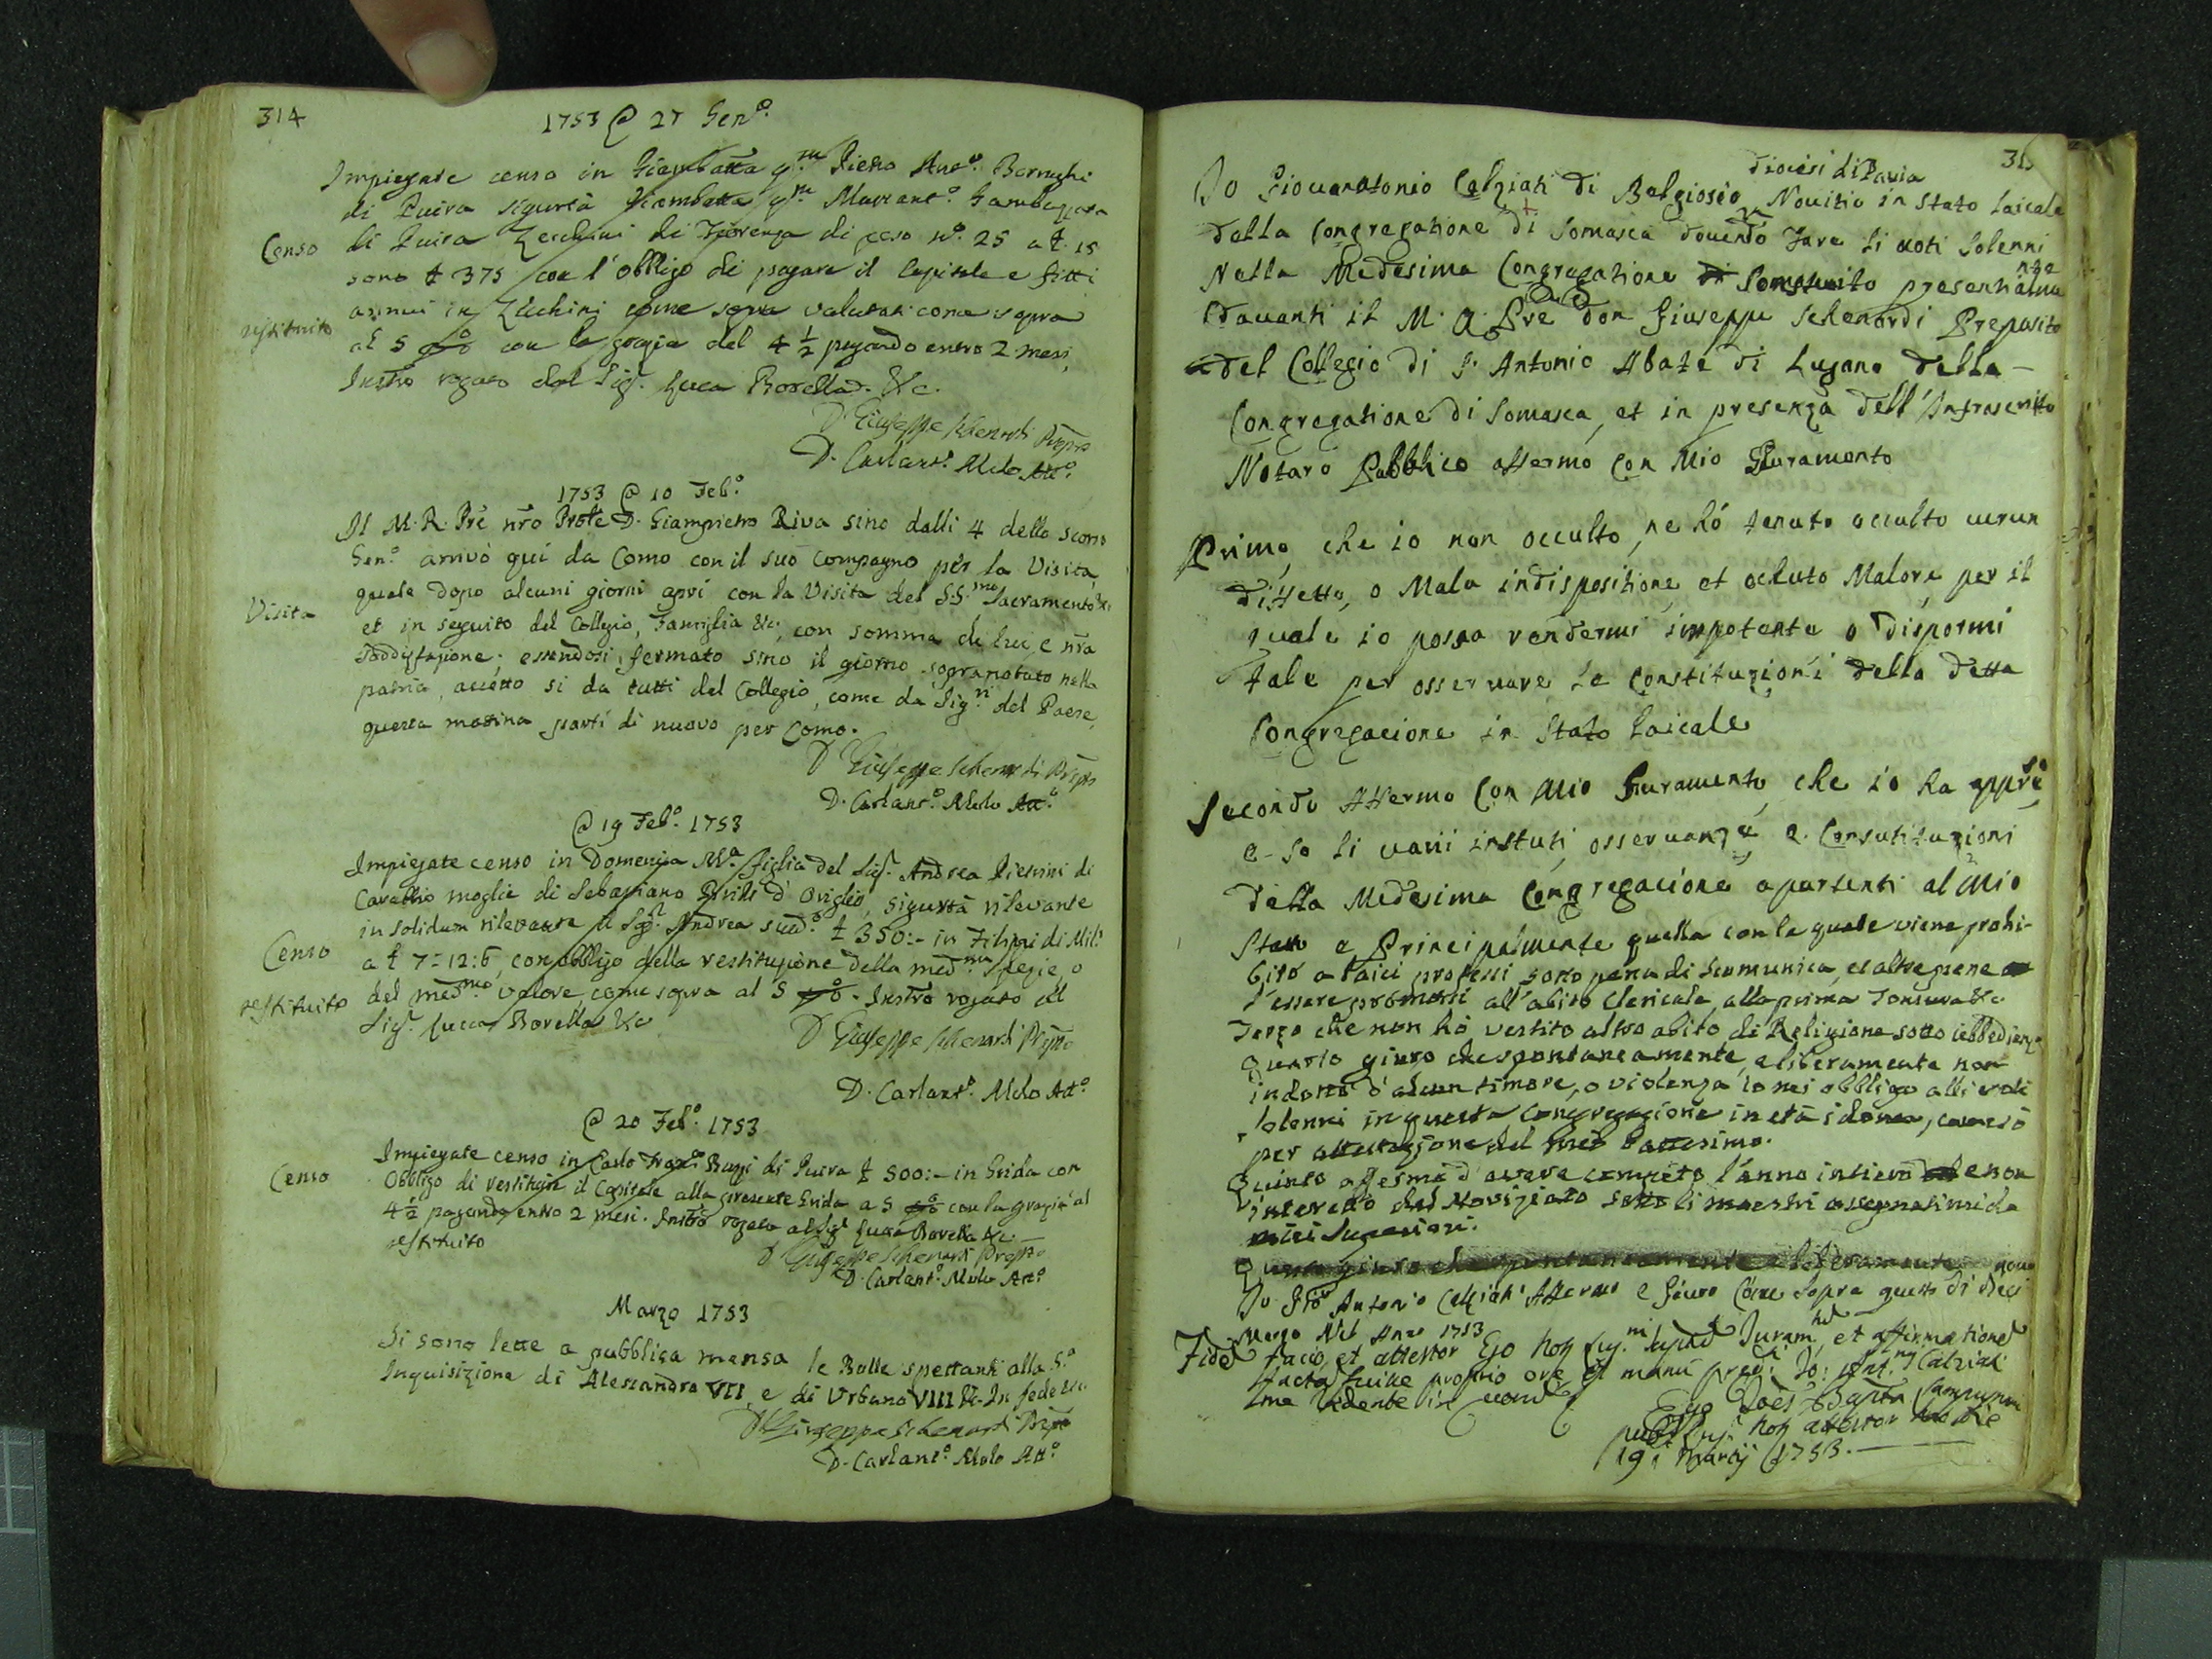 314
1753 @ 27 Gen.o
Impiegate censo in Giambatta q.m Pietro Ant.o Bernughi
di Puira sigurtà Giambatta q.m Marcant.o
Censo di Puira Zecchini di Fiorenza di peso n.o 25 a £ 15
sono £ 375 con l'obbligo di pagare il Capitale e fitti
restituito annui in Zecchini come sopra valutati come sopra
al 5 p% con la grazia del 4 1/2 pagando entro 2 mesi,
Instro rogato dal Sig.r Luca Borella d. &c.
D. Giuseppe Schenardi Prepto
D. Carlant.o Molo Att.o
1753 @ 10 Feb.o
Il M. R. Prè nro Prole D. Giampietro Riva sino dalli 4 dello scorso
Gen.o arrivò qui da Como con il suo Compagno per la Visita,
quale dopo alcuni giorni aprì con la Visita del SS.mo Sacramento &c
Visita et in seguito del Collegio, Famiglia &c; con somma di lui, e nra
soddisfazione; essendosi fermato sino il giorno sopranotato nella
patria, accetto sì da tutti del Collegio, come da Sig.ri del Paese,
questa matina partì di nuovo per Como.
D Giuseppe Schenardi Prepto
D. Carlant.o Molo Att.o
@ 19 Feb.o 1753
Impiegate censo in Domenica M.a figlia del Sig.r Andrea Pietrini di
Carabbio moglie di Sebastiano d'Origlio, sigurtà rilevante
in solidum rilevante il Sig.r Andrea sud.o £ 350:- in Filippi di Mil.o
Censo a £ 7-12:6, con obbligo della restituzione della med.ma spezie, o
restituito del med.mo valore come sopra al 5 p%. Instrò rogato dal
Sig.r Lucca Borella &c
D Giuseppe Schenardi Prepto
D. Carlant.o Molo Att.o
@ 20 Feb.o 1753
Censo Impiegate censo in Carlo Fran.o Buzzi di Puira £ 500:- in Grida con
Obbligo di restituire il Capitale alla presente Grida a 5 p% con la grazia al
4 1/2 pagando entro 2 mesi. Instrò rogato al Sig.r Luca Borella &c.
restituito
D Giuseppe Schenardi Prepto
D. Carlant.o Molo Att.o
Marzo 1753
Si sono lette a pubblica mensa le Bolle spettanti alla S.a
Inquisizione di Alessandro VII, e di Urbano VIII &c. In fede &c.
D Giuseppe Schenardi Prepto
D. Carlant.o Molo Att.o
315
diocesi di Pavia
Io Giovanatonio Calziati di Belgioso Novitio in Stato laicale
della Congregatione di Somasca dovendo fare li voti Solenni
Nella Medesima Congregatione di Somasca
davanti il M. R. Pre don Giuseppe Schenardi Preposito
del Collegio di S. Antonio Abate di Lugano della -
Congregatione di Somasca, et in presenza dell'Infrascritto
Notaro Pubblico affermo con Mio Giuramento
Primo, che io non occulto, ne hó tenuto occulto verun
diffetto, o Mala indispositione, et occluto Malore, per il
quale io possa rendermi impotente o dispormi
tale per osservare le Constituzioni della detta
Congregacione in Stato laicale
Secondo Affermo Con Mio Giuramento, che io ha appreso
e- so li varii instuti, osservanze, e Consutituzioni
della Medesima Congregacione apartenti al Mio
Stato e Principalmente quella con la quale viene prohi-
bito a laici professi sotto pena di scomunica, et altre pene
l'essere promossi all'abito Clericale, alla prima Tonsura &c
Terzo che non hò vestito altro abito di Religione sotto ubbedienza
Quarto giuro che spontaneamente, e liberamente non
indotto d'alcun timore, o violenza io mi obbligo alli voti
solenni in questa Congregazione in età idonea, come sò
per attestazione del mio battesimo.
Quinto affermo d'avere compito l'anno intiero e non
interotto del Noviziato sotto li maestri assegnatimi da
miei Superiori.
Quarto giuro che spontaneamente e liberamente non
Io Gio Antonio Calziati Affermo e Giuro Come Sopra questo dì dieci
Marzo Nel Anno 1753
Fidem facio, et attestor Ego Not. Lug.ni Juram.tum et affirmationem
factam fuisse proprio ore et manu pred.i Jo: Ant.ny Calziati
me vidente in
Ego Joes Bapta
pub. Lug. Not. attestor
19 Martij 1753.